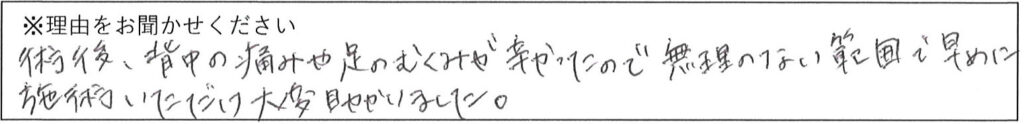 ※理由をお聞かせください
術後、背中の痛みや足のむくみが辛かったので無理のない範囲で早めに
施術いただけ大変助かりました。